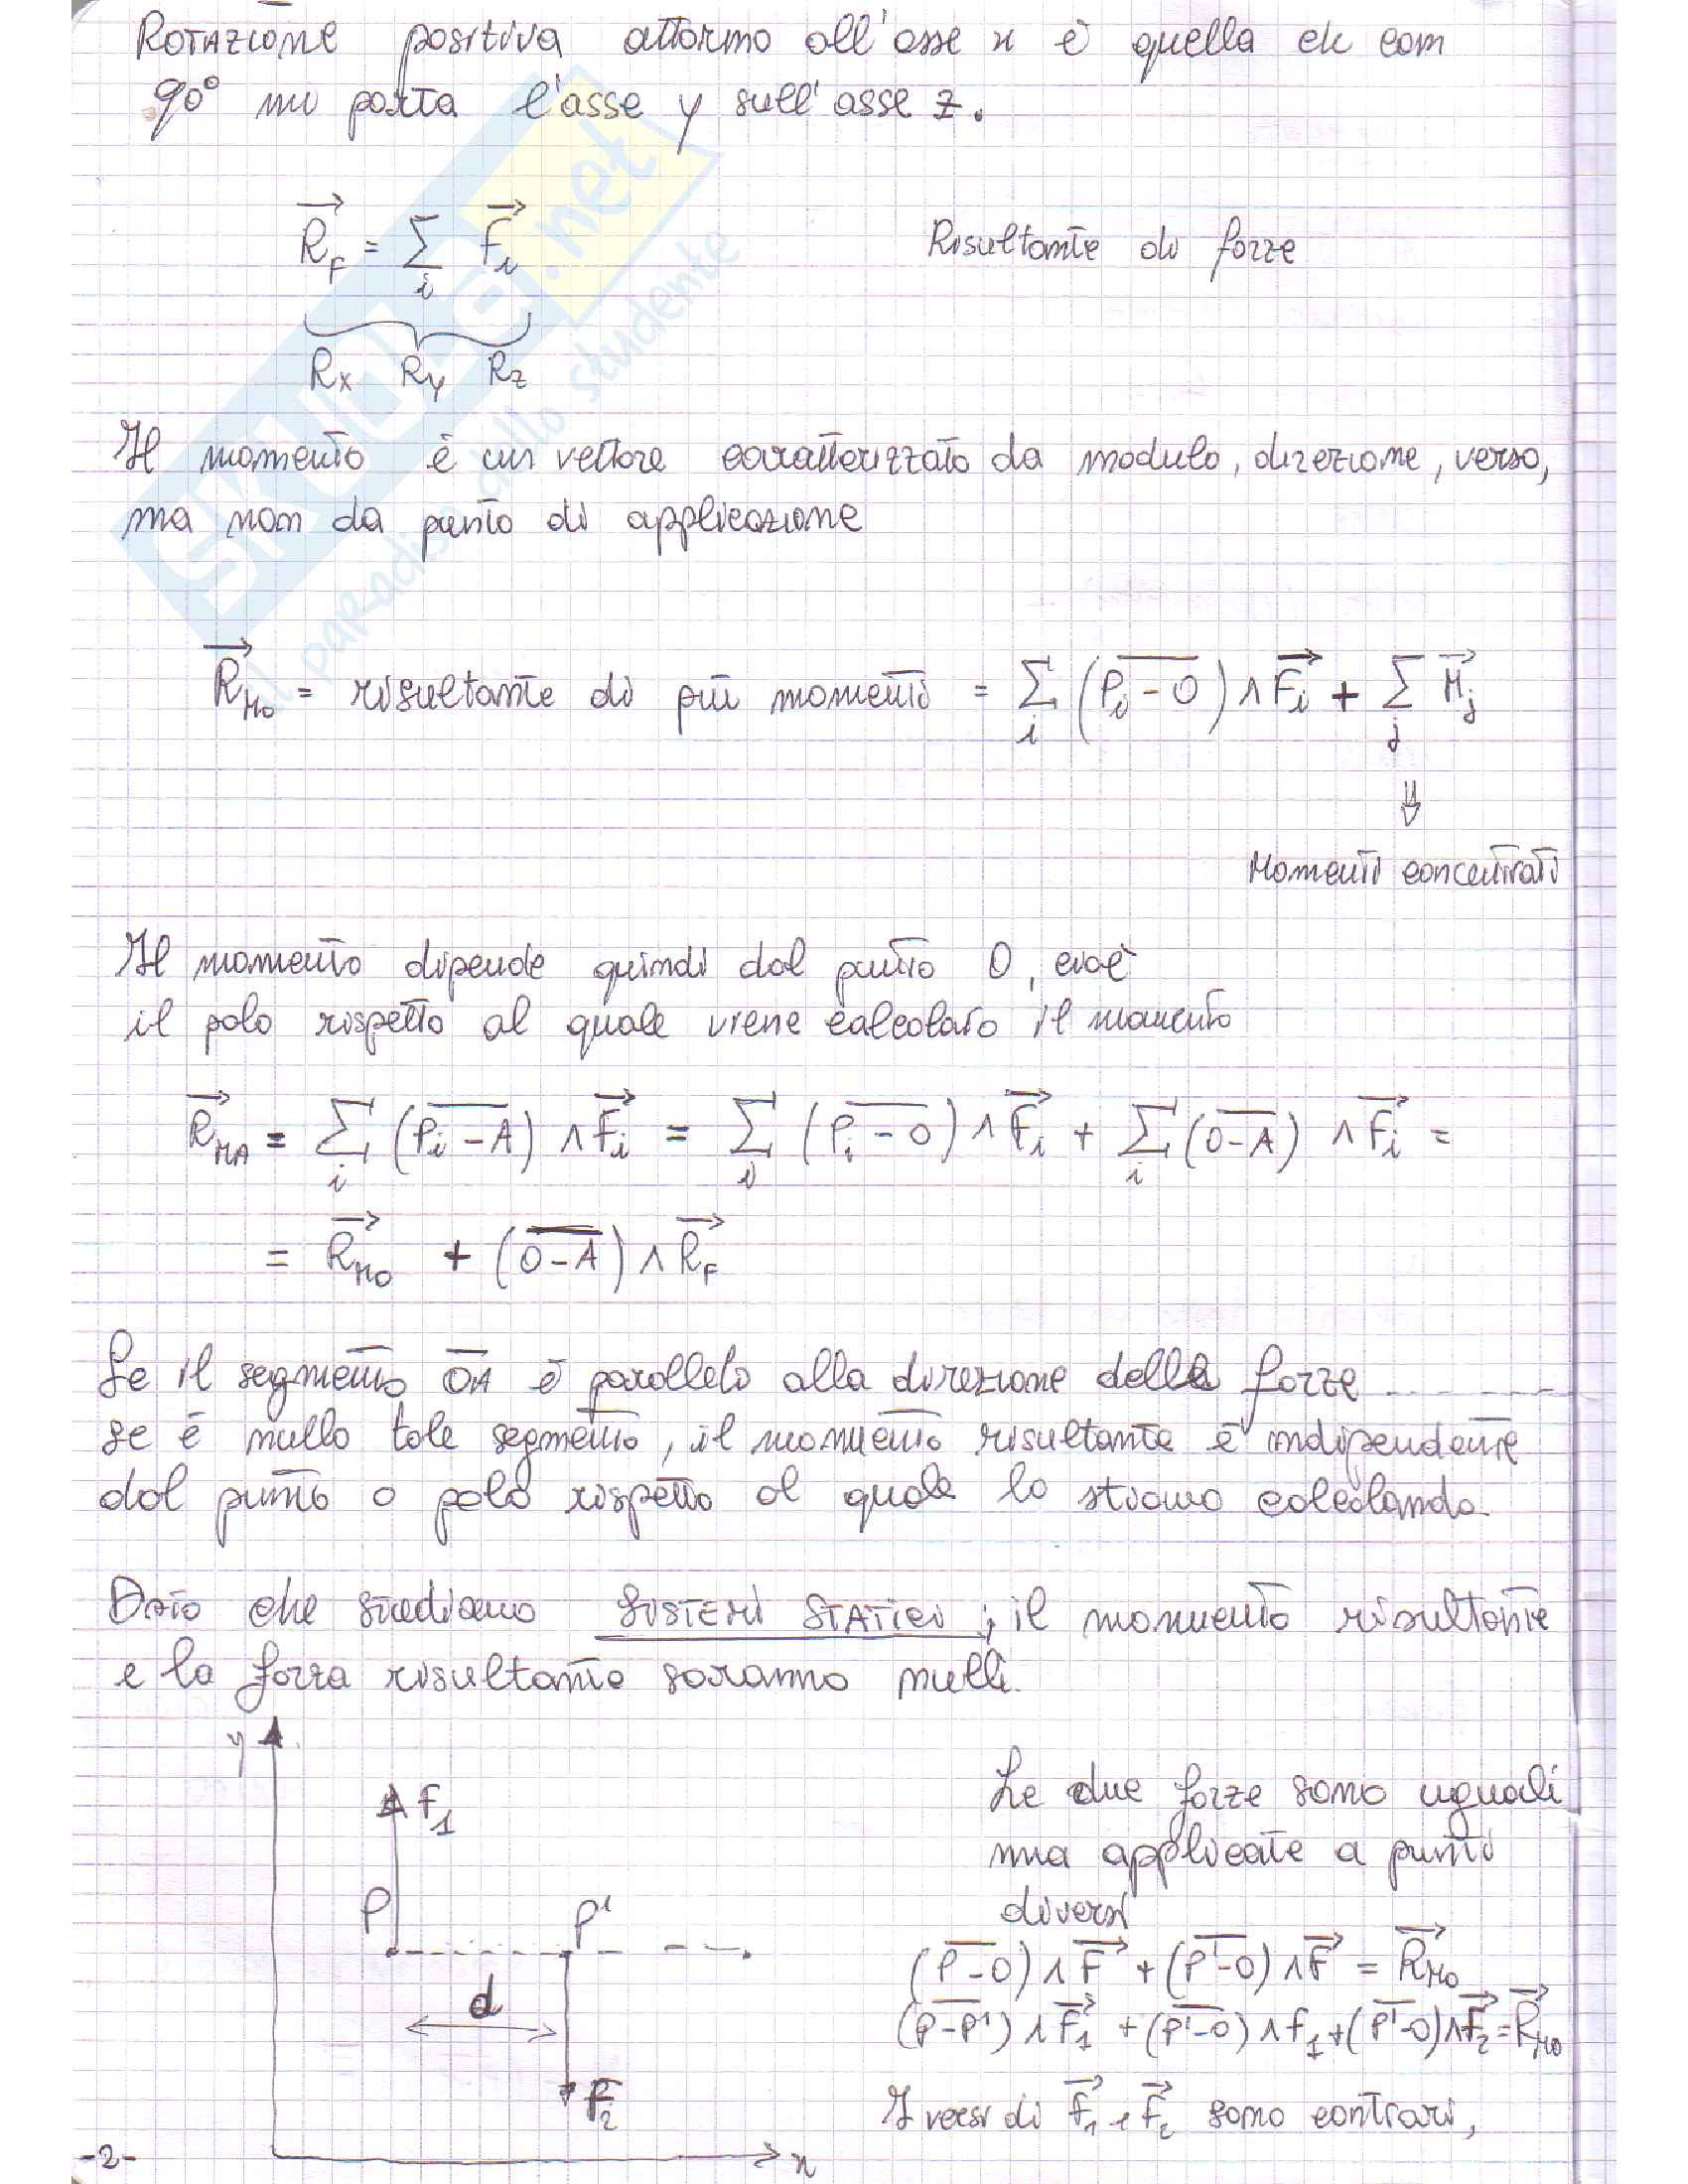 Rotazione positiva attorno all'asse x è quella che con
90° mi porta l'asse y sull'asse z.
R_F = Σ_i F_i
Risultante di forze
Rx Ry Rz
Il momento è un vettore caratterizzato da modulo, direzione, verso,
ma non da punto di applicazione
R_Mo = risultante di più momenti = Σ_i (Pi - O) ∧ Fi + Σ_j Mj
⇓
Momenti concentrati
Il momento dipende quindi dal punto O, cioè
il polo rispetto al quale viene calcolato il momento
R_MA = Σ_i (Pi - A) ∧ Fi = Σ_i (Pi - O) ∧ Fi + Σ_i (O - A) ∧ Fi =
= R_MO + (O - A) ∧ R_F
Se il segmento OA è parallelo alla direzione delle forze
se è nullo tale segmento, il momento risultante è indipendente
dal punto o polo rispetto al quale lo stiamo calcolando
Dato che studiamo SISTEMI STATICI; il momento risultante
e la forza risultante saranno nulli.
y
F1
P
P'
d
F2
x
Le due forze sono uguali
ma applicate a punti
diversi
(P - O) ∧ F + (P' - O) ∧ F = R_MO
(P - P') ∧ F1 + (P' - O) ∧ F1 + (P' - O) ∧ F2 = R_MO
I versi di F1 e F2 sono contrari,
-2-
SKUOLA.net
il paradiso dello studente